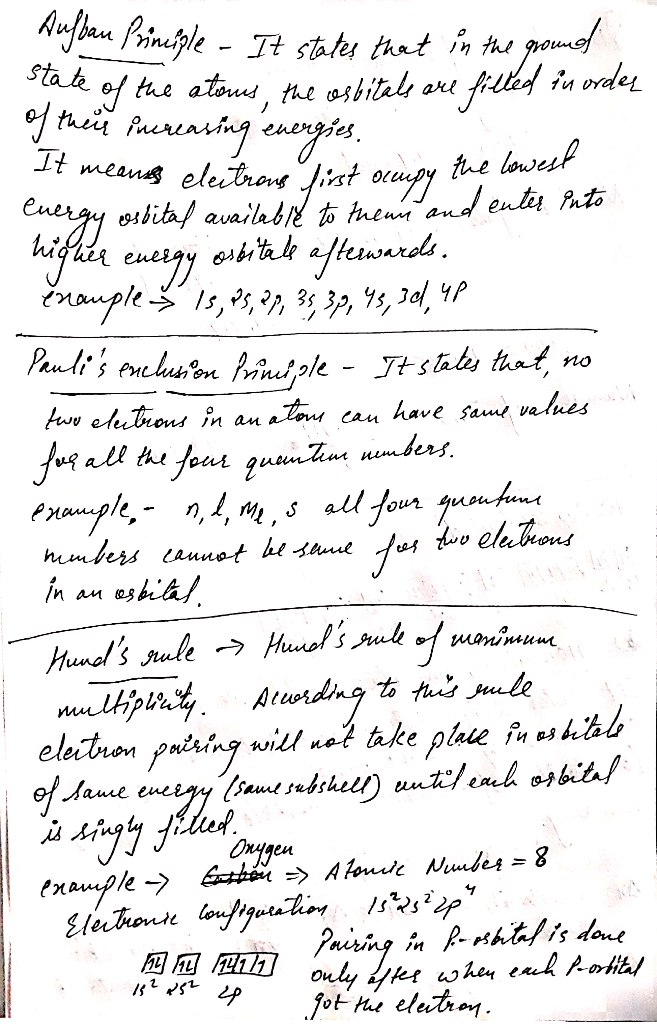 Aufbau Principle - It states that in the ground
state of the atoms, the orbitals are filled in order
of their increasing energies.
It means electrons first occupy the lowest
energy orbital available to them and enter into
higher energy orbitals afterwards.
example → 1s, 2s, 2p, 3s, 3p, 4s, 3d, 4p
Pauli's exclusion Principle - It states that, no
two electrons in an atom can have same values
for all the four quantum numbers.
example,- n, l, mₑ, s all four quantum
numbers cannot be same for two electrons
in an orbital.
Hund's rule → Hund's rule of maximum
multiplicity. According to this rule
electron pairing will not take place in orbitals
of same energy (same subshell) until each orbital
is singly filled.
Oxygen
example → Carbon => Atomic Number = 8
Electronic configuration 1s²2s²2p⁴
Pairing in P-orbital is done
only after when each P-orbital
got the electron.
1↓ 1↓ 1↓ 1 1
1s² 2s² 2p